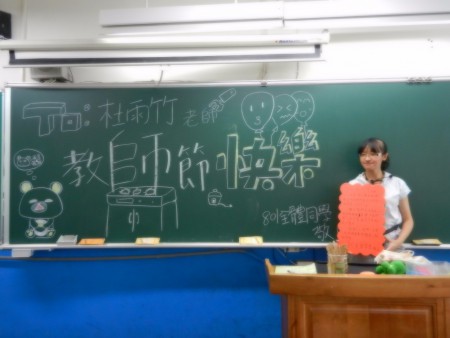 To: 杜雨竹 老師
教師節快樂
801全體同學
敬